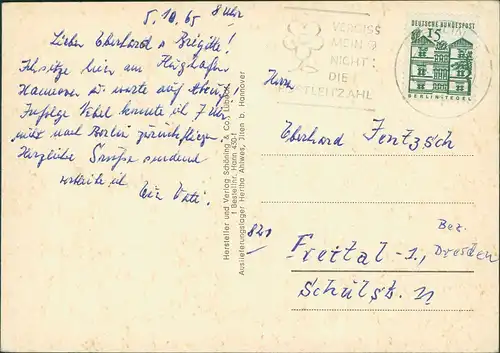 5.10.65 8 Uhr
Lieber Eberhard u Brigitte!
Ich sitze hier am Flughafen
Hannover u. warte auf
Infolge Nebel konnte ich 7 Uhr
nicht nach Berlin zurückfliegen.
Herzliche Grüße sendend
ich Euer Vati.
VERGISS
MEIN
NICHT:
DIE
POSTLEITZAHL
DEUTSCHE BUNDESPOST
15
BERLIN-TEGEL
Herrn
Eberhard Jentzsch
821
Freital-1., Bez. Dresden
Schulstr. 11
Hersteller und Verlag Schöning & Co., Lübeck
1 Bestellnr. Hann 4301
Auslieferungslager Hertha Ahlwes, Ilten b. Hannover